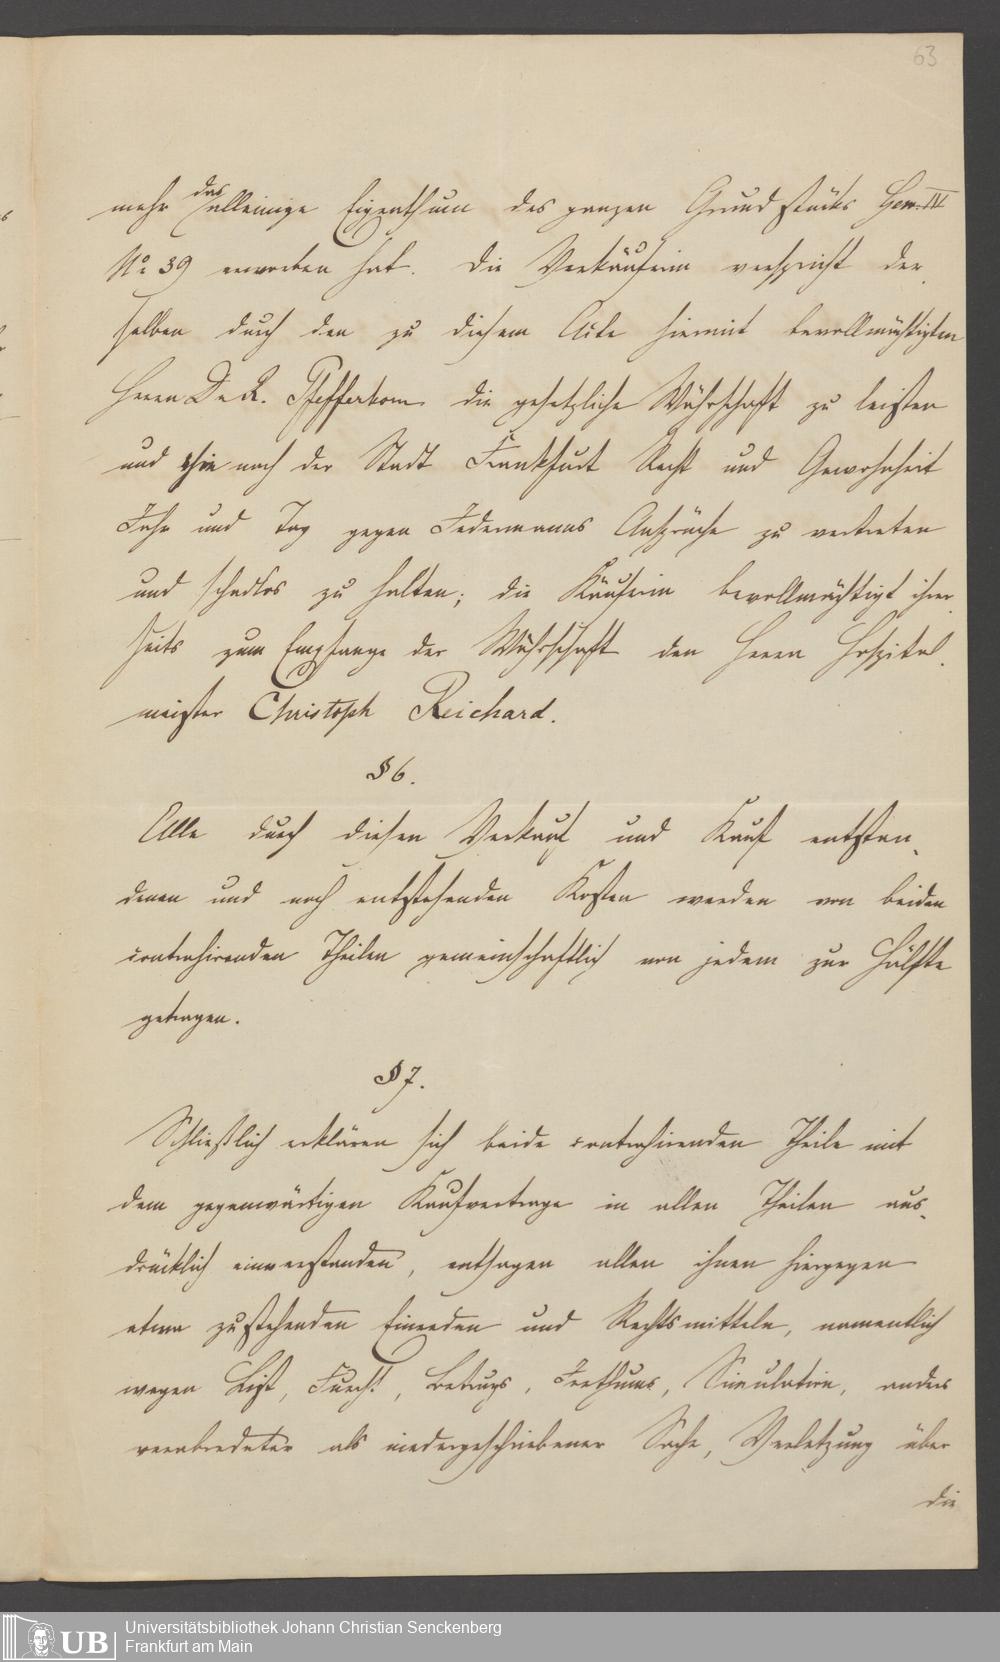 63
mehr das alleinige Eigenthum des ganzen Grundstücks Gew. IV
No 39 erworben hat. Die Verkäuferin verspricht der-
selben durch den zu diesem Acte hiermit bevollmächtigten
Herrn Dr. Pfefferkorn die gesetzliche Währschaft zu leisten
und sie nach der Stadt Frankfurt Recht und Gewohnheit
Jahr und Tag gegen Jedermanns Ansprüche zu vertreten
und schadlos zu halten; die Käuferin bevollmächtigt ihrer-
seits zum Empfange der Währschaft den Herrn Hospital-
meister Christoph Reichard.
§ 6.
Alle durch diesen Verkauf und Kauf entstan-
denen und noch entstehenden Kosten werden von beiden
contrahirenden Theilen gemeinschaftlich von jedem zur Hälfte
getragen.
§ 7.
Schließlich erklären sich beide contrahirenden Theile mit
dem gegenwärtigen Kaufvertrage in allen Theilen aus-
drücklich einverstanden, entsagen allen ihnen hiergegen
etwa zustehenden Einreden und Rechtsmitteln, namentlich
wegen List, Furcht, Betrugs, Irrthums, Simulation, anders
verabredeter als niedergeschriebener Sache, Verletzung über
die
Universitätsbibliothek Johann Christian Senckenberg
Frankfurt am Main
UB